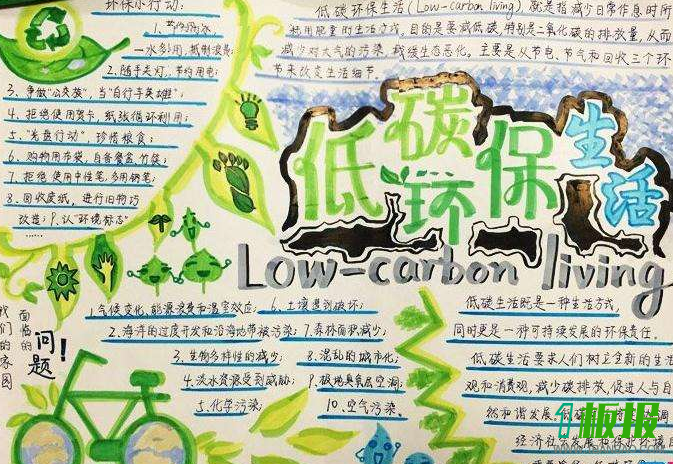 环保小行动:
1.节约用水
一水多用,抵制浪费
2.随手关灯,节约用电
3.争做"公交族",当"自行车英雄";
4.拒绝使用贺卡,纸张循环利用;
5."光盘行动",珍惜粮食;
6.购物用布袋,自备餐盒、竹筷;
7.拒绝使用中性笔,多用钢笔;
8.回收废纸,进行旧物巧
改造;9.认"环境标志"
低碳环保生活(Low-carbon living),就是指减少日常作息时所
耗用能量的生活方式,目的是要减低碳,特别是二氧化碳的排放量,从而
减少对大气的污染,减缓生态恶化。主要是从节电、节气和回收三个环
节来改变生活细节。
低碳环保生活
Low-carbon living
我们的家园
面临的
问题!
1.气候变化、能源浪费和温室效应;
2.海洋的过度开发和沿海地带被污染;
3.生物多样性的减少;
4.淡水资源受到威胁;
5.化学污染;
6.土壤遭到破坏;
7.森林面积减少;
8.混乱的城市化;
9.极地臭氧层空洞;
10.空气污染。
低碳生活既是一种生活方式,
同时更是一种可持续发展的环保责任。
低碳生活要求人们树立全新的生活
观和消费观,减少碳排放,促进人与自
然和谐发展。低碳
经济社会发展和保护环境
板报